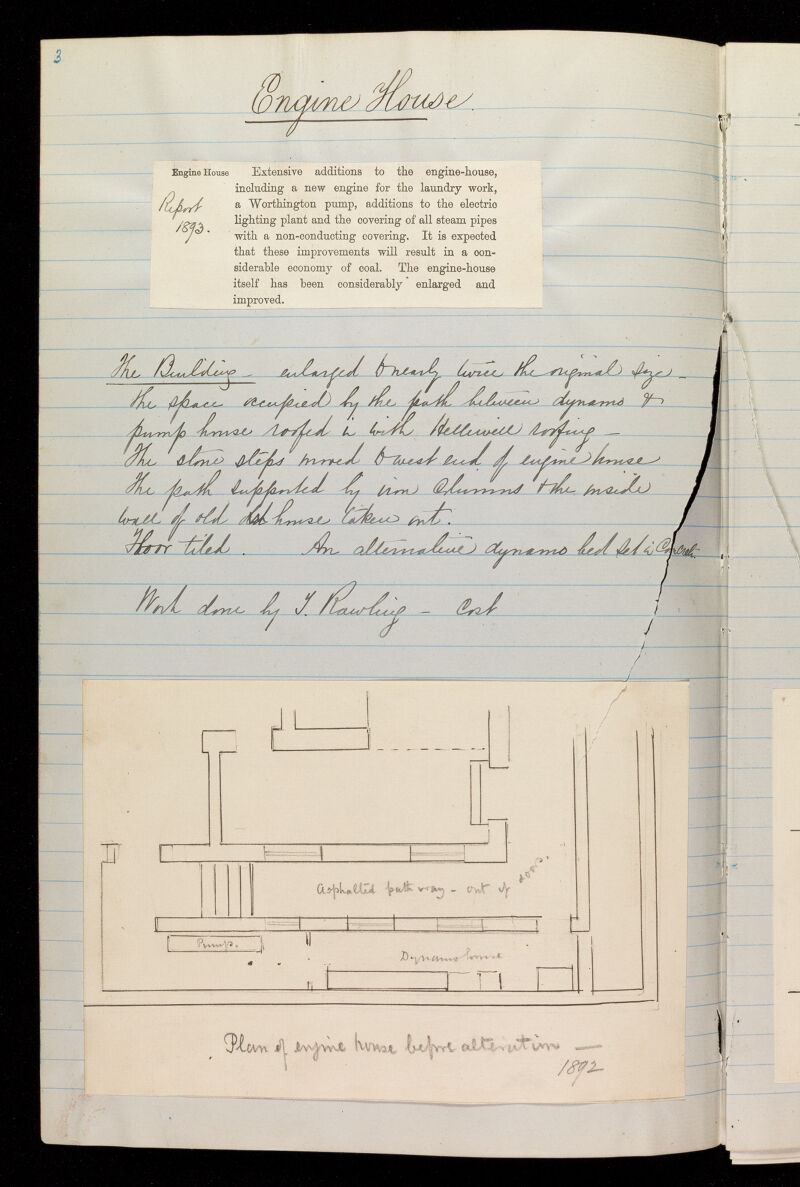 3
Engine House
Engine House Extensive additions to the engine-house,
including a new engine for the laundry work,
Report a Worthington pump, additions to the electric
1893. lighting plant and the covering of all steam pipes
with a non-conducting covering. It is expected
that these improvements will result in a con-
siderable economy of coal. The engine-house
itself has been considerably enlarged and
improved.
The Building – enlarged to nearly twice the original size –
the space occupied by the path between dynamo &
pump house roofed in with Helliwell roofing –
The stone steps moved to west end of engine house
The path supported by iron columns & the inside
wall of old house taken out.
Floor tiled. An alternative dynamo bed set in Concrete.
Work done by T. Rawling – Cost
Asphalted path way – out of doors.
Pump.
Dynamo house
Plan of engine house before alteration —
1892